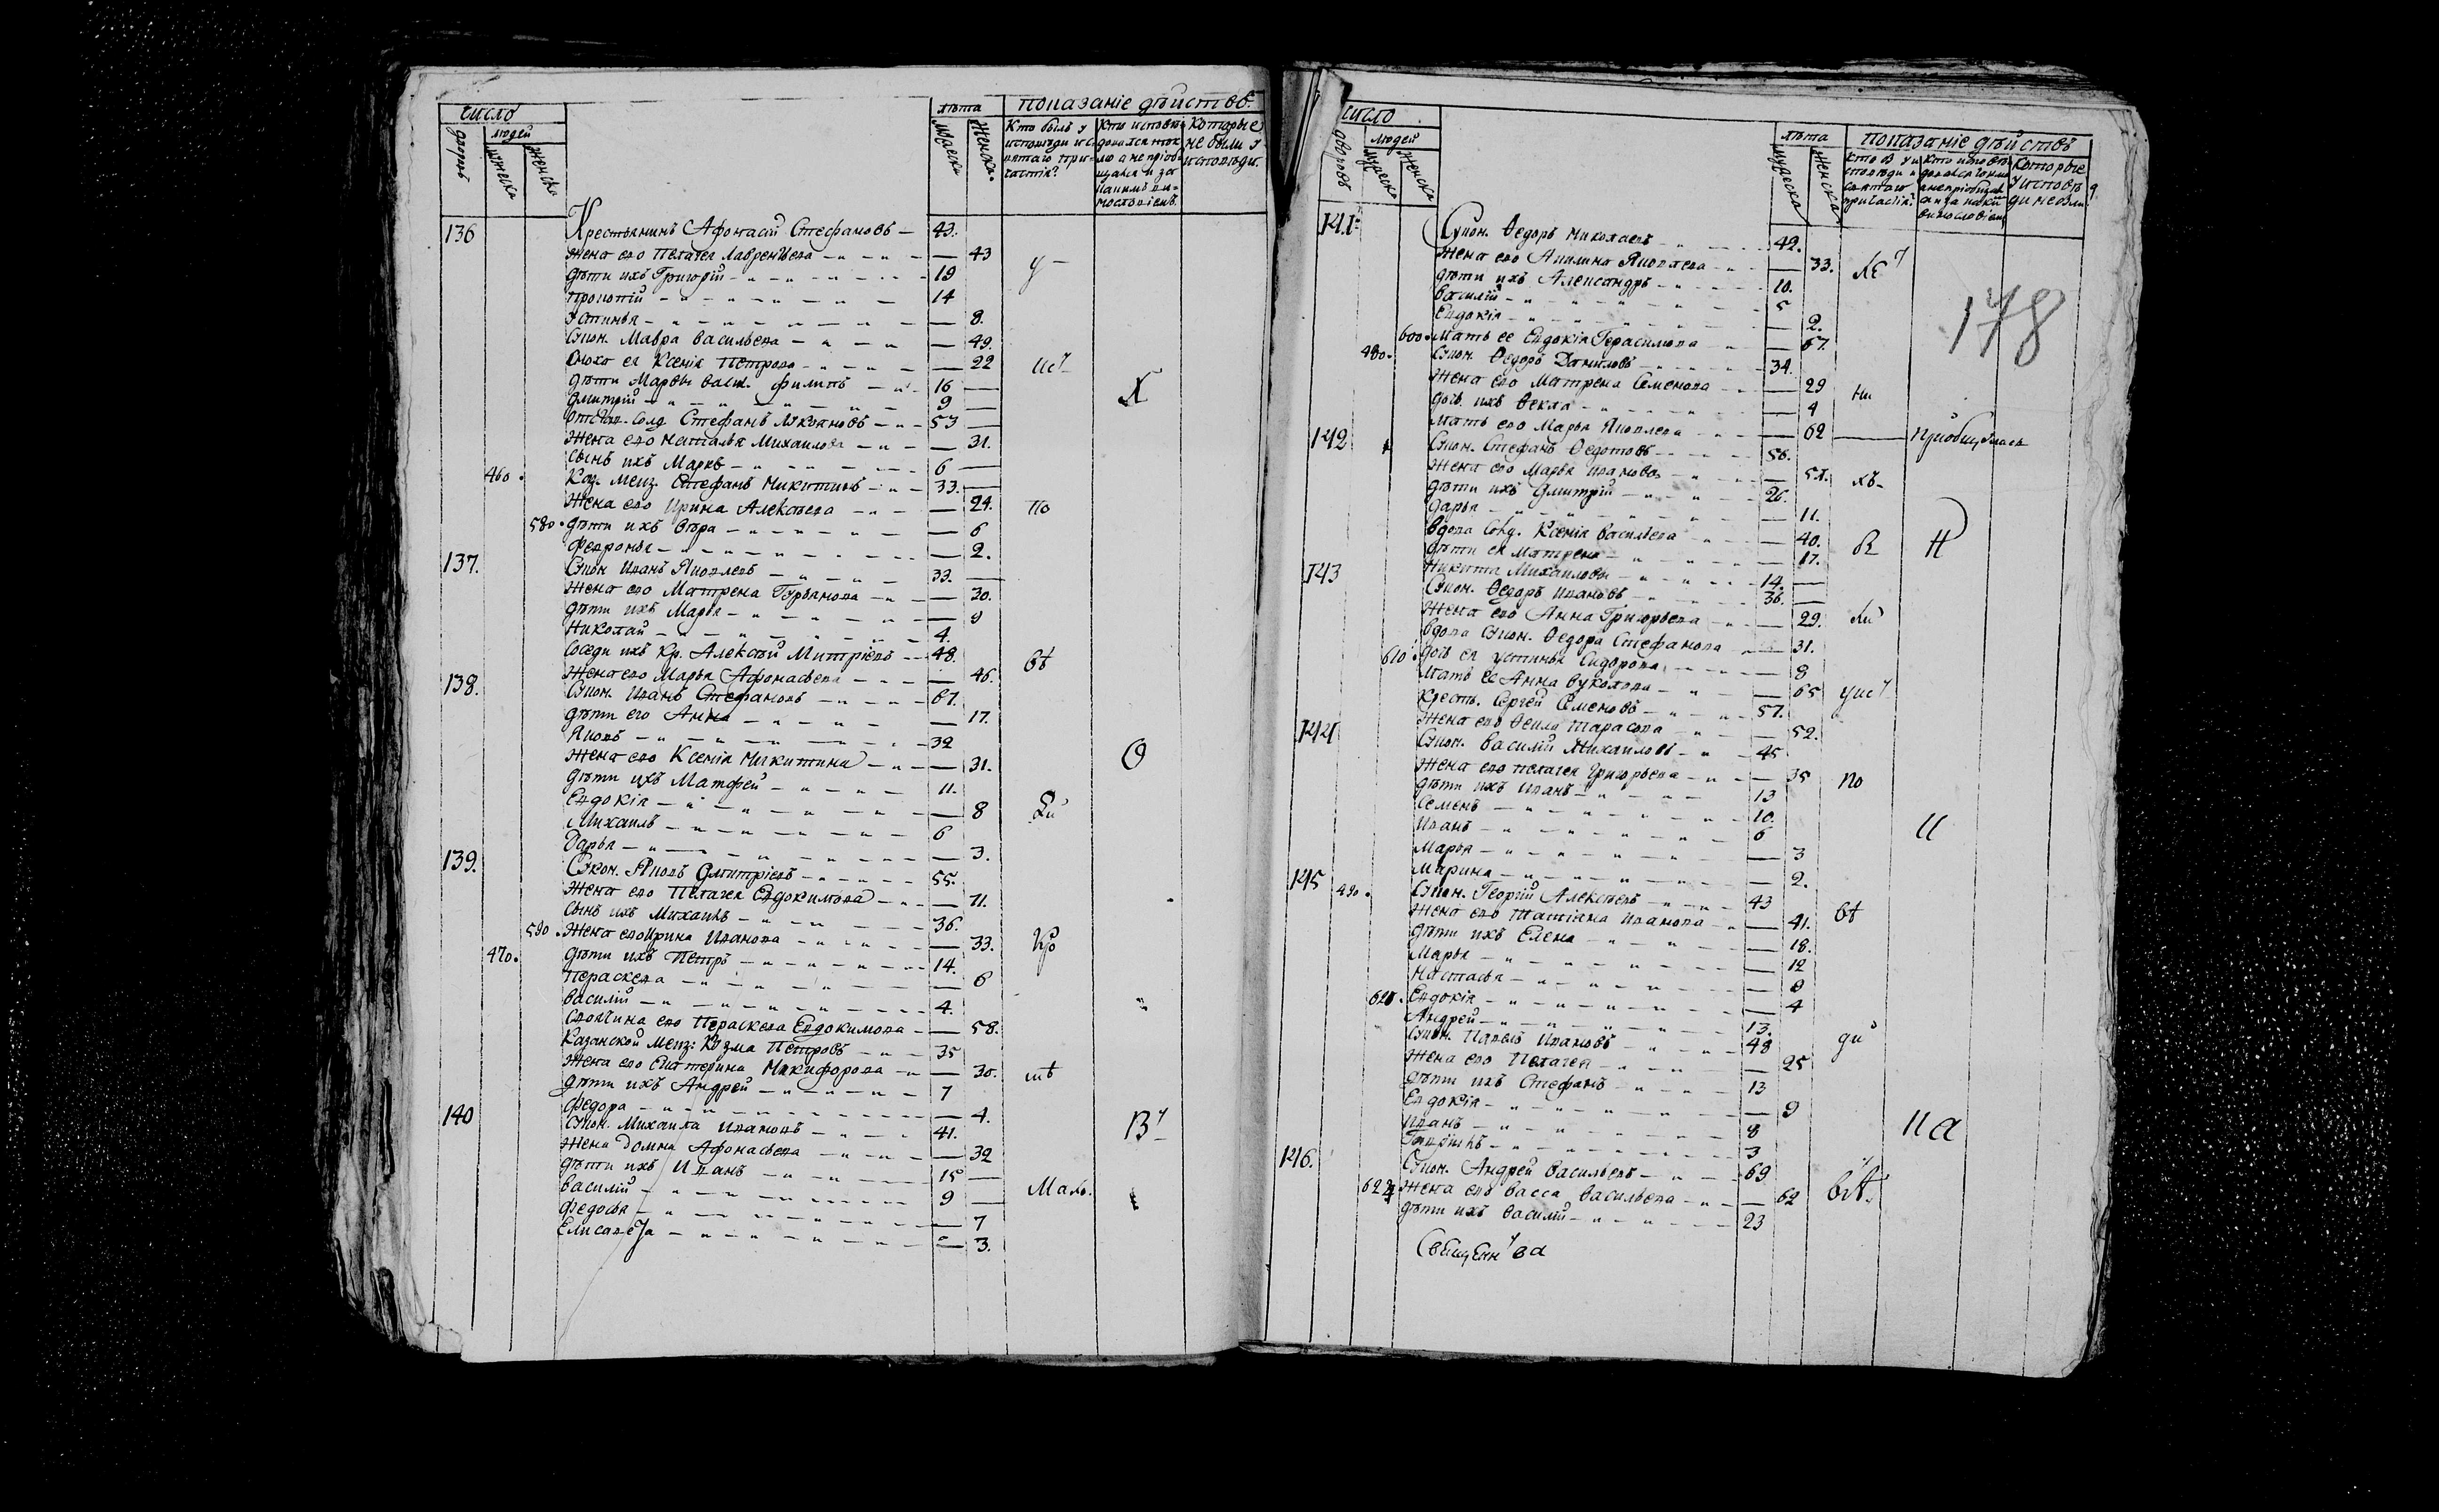 число
лѣта
показаніе дѣйствъ
дворовъ
людей
мужеска
женска
мужеска
женска
Кто былъ у исповѣди и святаго причастія?
Которые не были у исповѣди.
136 Крестьянинъ Афонасій Стефановъ — 43.
жена ево Пелагея Лаврентьева — 43
дѣти ихъ Григорій — 19
Прокопій — 14
Устинья — 8.
Экон. Мавра Васильева — 49.
Сноха ея Ксенія Петрова — 22
дѣти Мавры Васил. Филипъ — 16
Дмитрій — 9
Отстав. Солд. Стефанъ Лукояновъ — 53
Жена ево Наталья Михаилова — 31.
Сынъ ихъ Марко — 6
460. Каз. Стефанъ Никитинъ — 33.
Жена ево Ирина Алексѣева — 24.
580. дѣти ихъ Вѣра — 6
Февронья — 2.
137. Экон Иванъ Яковлевъ — 33.
Жена ево Матрена Гурьянова — 30.
дѣти ихъ Марья — 9
Николай — 4.
Соседи ихъ Кр. Алексѣй Митріевъ — 48.
Жена ево Марья Афонасьева — 46.
138. Экон. Иванъ Стефановъ — 67.
дѣти его Анна — 17.
Яковъ — 32
Жена ево Ксенія Никитина — 31.
дѣти ихъ Матфей — 11.
Евдокія — 8
Михаилъ — 6
Дарья — 3.
139. Экон. Яковъ Дмитріевъ — 55.
Жена ево Пелагея Евдокимова — 71.
Сынъ ихъ Михаилъ — 36.
590. Жена ево Ирина Иванова — 33.
470. дѣти ихъ Петръ — 14.
Параскева — 6
Василій — 4.
Своячина ево Параскева Евдокимова — 58.
Казанской Козма Петровъ — 35
Жена ево Екатерина Никифорова — 30.
дѣти ихъ Андрей — 7
Федора — 4.
140 Экон. Михаила Ивановъ — 41.
Жена Домна Афонасьева — 32
дѣти ихъ Иванъ — 15
Василій — 9
Федосья — 7
Елисавета — 3.
число
лѣта
показаніе дѣйствъ
дворовъ
людей
мужеска
женска
мужеска
женска
178
141. Экон. Ѳедоръ Николаевъ — 42.
Жена ево Акилина Яковлева — 33.
дѣти ихъ Александръ — 10.
Василій — 5
Евдокія — 2.
600. Мать ее Евдокія Герасимова — 67.
480. Экон. Ѳедоръ Даниловъ — 34.
Жена ево Матрена Семенова — 29
дочь ихъ Ѳекла — 4
Мать ево Марья Яковлева — 62
142 Экон. Стефанъ Ѳедотовъ — 56.
Жена ево Марья Иванова — 51.
дѣти ихъ Дмитрій — 26.
Дарья — 11.
Вдова Солд. Ксенія Васильева — 40.
дѣти ея Матрена — 17.
Никита Михаиловы — 14.
143 Экон. Ѳедоръ Ивановъ — 36.
Жена ево Анна Григорьева — 29.
Вдова Экон. Ѳедора Стефанова — 31.
610. дочь ея Устинья Сидорова — 8
Мать ее Анна Вуколова — 65
Кресть. Сергей Семеновъ — 57.
Жена ево Ѳекла Тарасова — 52.
144 Экон. Василій Михаиловъ — 45
Жена ево Пелагея Григорьева — 35
дѣти ихъ Иванъ — 13
Семенъ — 10.
Иванъ — 6
Марья — 3
Марина — 2.
145 490. Экон. Георгій Алексѣевъ — 43
Жена ево Татіана Иванова — 41.
дѣти ихъ Елена — 18.
Марья — 12
Настасья — 9
620. Евдокія — 4
Андрей — 13.
Экон. Павелъ Ивановъ — 48
Жена ево Пелагея — 25
дѣти ихъ Стефанъ — 13
Евдокія — 9
Иванъ — 8
Гаврилъ — 3
146. Экон. Андрей Васильевъ — 69
Жена ево Васса Васильева — 62
дѣти ихъ Василій — 23